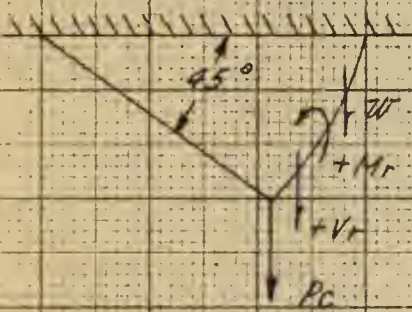 45°
W
+Mr
+Vr
Pc